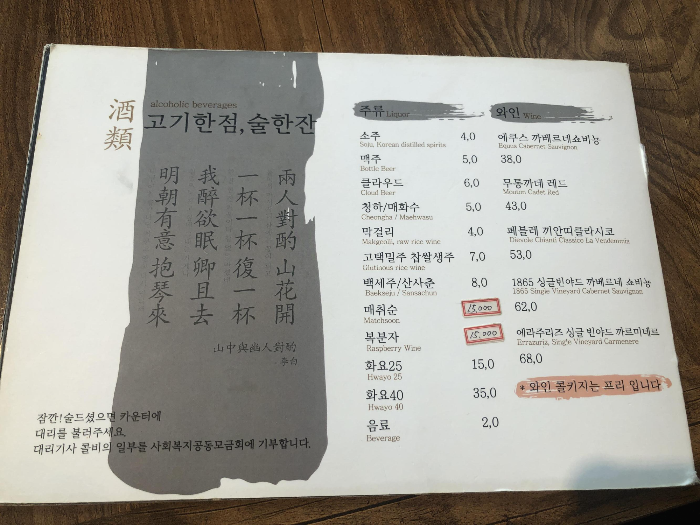 酒類
alcoholic beverages
고기한점,술한잔
兩人對酌山花開
一杯一杯復一杯
我醉欲眠卿且去
明朝有意抱琴來
山中與幽人對酌
李白
잠깐!술드셨으면 카운터에
대리를 불러주세요
대리기사 콜비의 일부를 사회복지공동모금회에 기부합니다.
주류 Liquor
소주 4,0
Soju, Korean distilled spirits
맥주 5,0
Bottle Beer
클라우드 6,0
Cloud Beer
청하/매화수 5,0
Cheongha / Maehwasu
막걸리 4,0
Makgeolli, raw rice wine
고택밀주 찹쌀생주 7,0
Glutinous rice wine
백세주/산사춘 8,0
Baekseju / Sansachun
매취순 15,000
Matchsoon
복분자 15,000
Raspberry Wine
화요25 15,0
Hwayo 25
화요40 35,0
Hwayo 40
음료 2,0
Beverage
와인 Wine
에쿠스 까베르네쇼비뇽
Equus Cabernet Sauvignon
38,0
무통까데 레드
Mouton Cadet Red
43,0
폐블레 끼안띠클라시코
Dievole Chianti Classico La Vendemmia
53,0
1865 싱글빈야드 까베르네 쇼비뇽
1865 Single Vineyard Cabernet Sauvignon
62,0
에라주리즈 싱글 빈야드 까르미네르
Errazuriz, Single Vineyard Carmenere
68,0
* 와인 콜키지는 프리 입니다